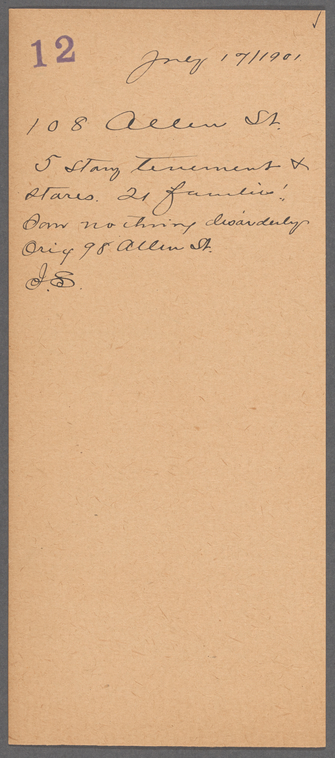 12
July 17/1901
108 Allen St.
5 story tenement &
stores. 21 families.
Saw nothing disorderly
Orig 98 Allen St.
J.S.